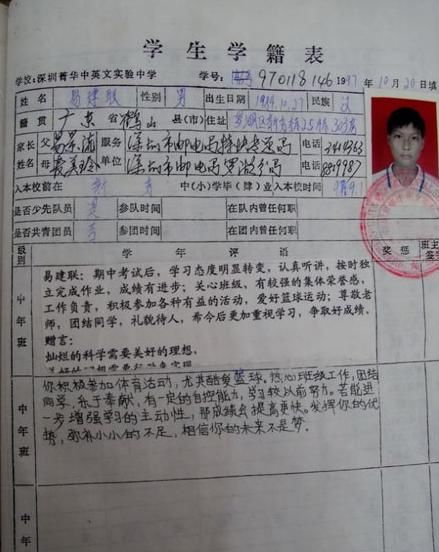 学生学籍表
学校:深圳菁华中英文实验中学 学号: 970118146 1997年10月20日填
姓名 易建联 性别 男 出生日期 1984.10.27 民族 汉
籍贯 广东省鹤山县(市) 住址
家长 父 易景流 服务 电话
姓名 母 麦美玲 单位 电话
入本校前在 中(小)学毕(肄)业 入本校时间
是否少先队员 参队时间 在队内曾任何职
是否共青团员 否 参团时间 在团内曾任何职
级别 学年评语 奖惩 班主
签
中年班
易建联:期中考试后,学习态度明显转变,认真听讲,按时独
立完成作业,成绩有进步;关心班级,有较强的集体荣誉感,
工作负责,积极参加各种有益的活动,爱好篮球运动;尊敬老
师,团结同学,礼貌待人,希今后更加重视学习,争取好成绩.
赠言:
灿烂的科学需要美好的理想,
中年班
你积极参加体育活动,尤其酷爱篮球。热心班级工作,团结
同学,乐于奉献,有一定的自控能力,学习较以前努力。若能进
一步增强学习的主动性,那成绩会提高更快。发挥你的优
势,弥补小小的不足,相信你的未来不是梦.
中年